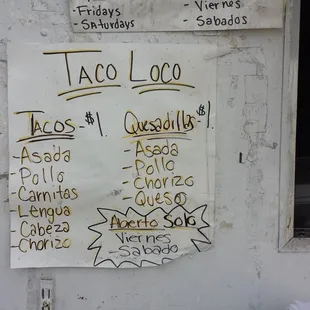 -Fridays
-Saturdays
-Viernes
-Sabados
Taco Loco
Tacos-$1
-Asada
-Pollo
-Carnitas
-Lengua
-Cabeza
-Chorizo
Quesadillas-$1
-Asada
-Pollo
-Chorizo
-Queso
Abierto Solo
Viernes
-Sabado